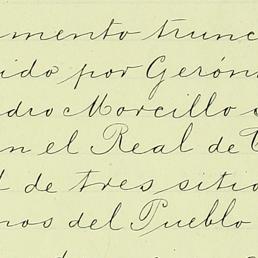 mento trunc
ido por Gerón
dro Morcillo
en el Real de
de tres sitio
nos del Pueblo